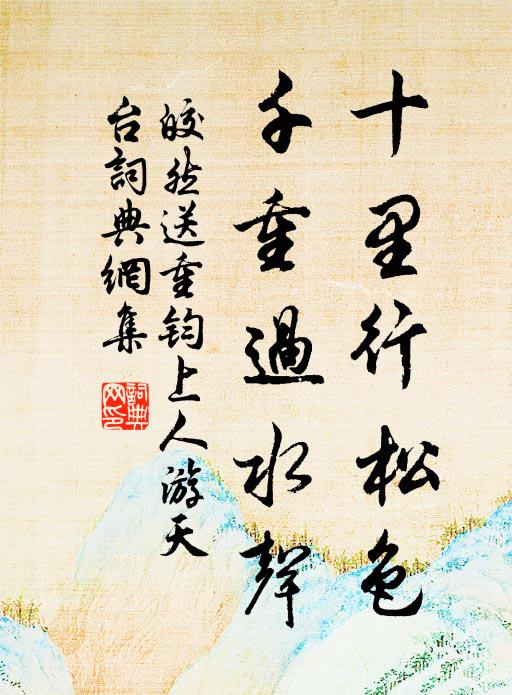 十里行松色
千重過水聲
皎然送重鈞上人游天
台詞典網集
詞典網印